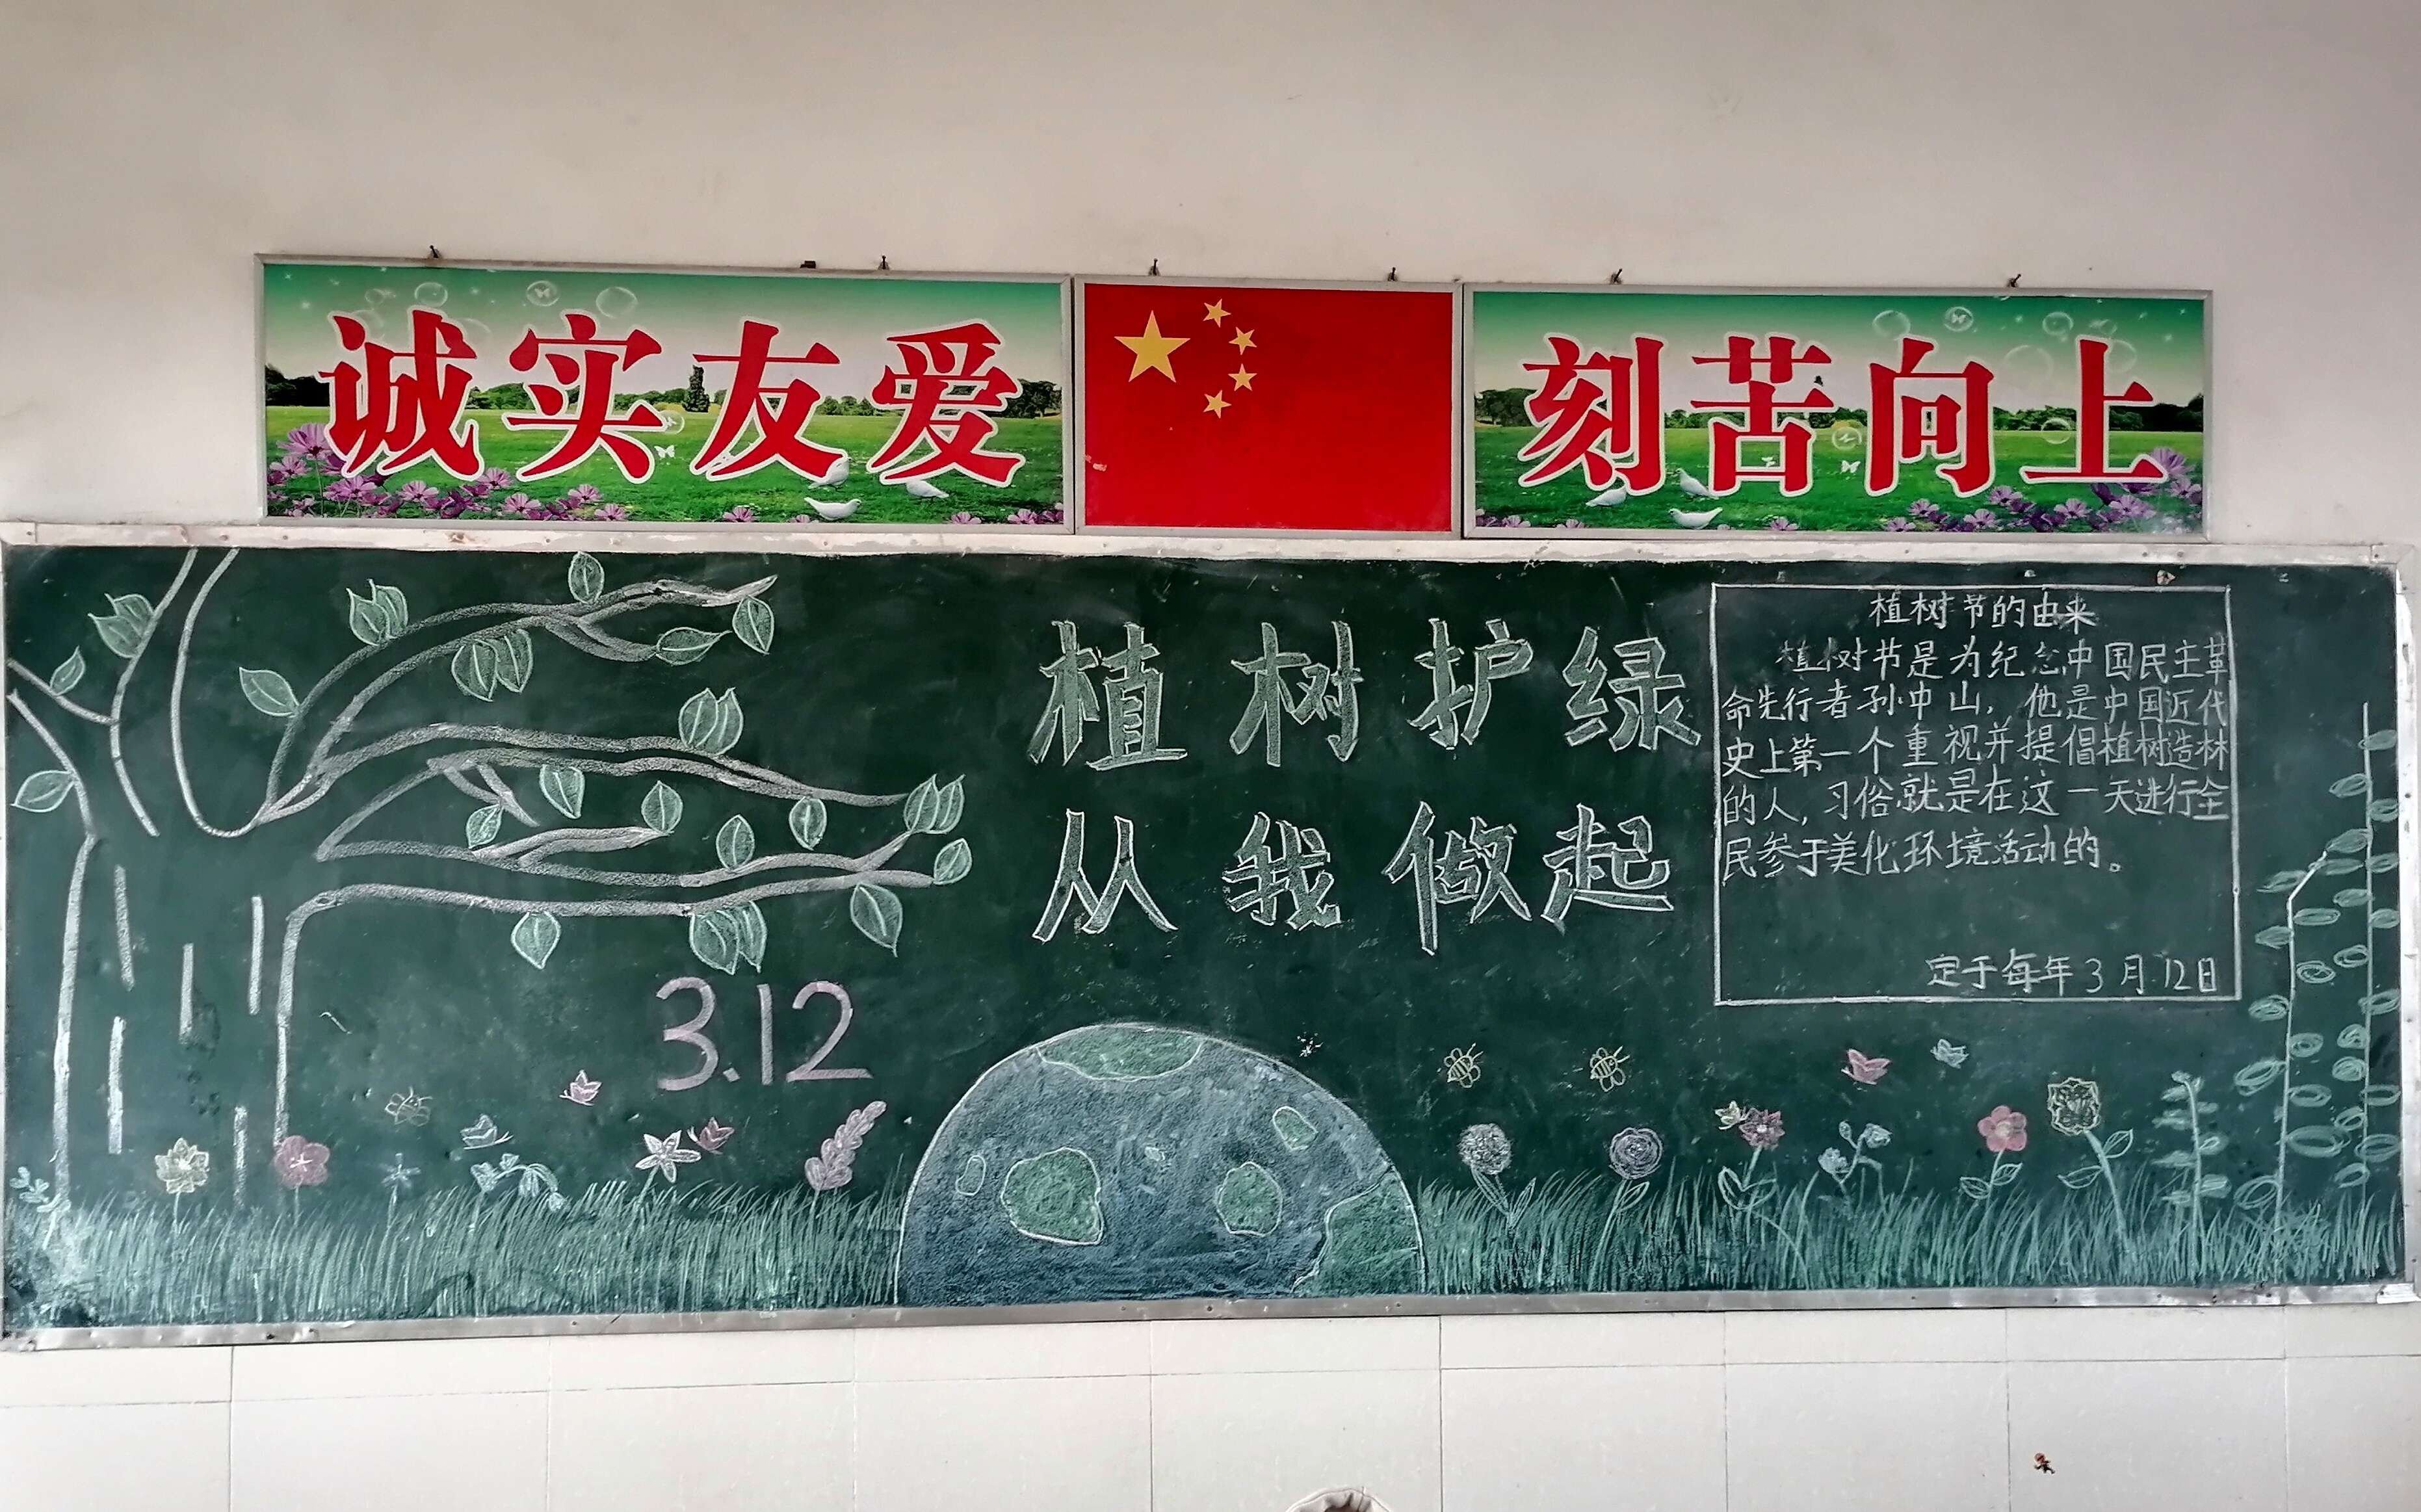 诚实友爱
刻苦向上
植树护绿
从我做起
3.12
植树节的由来
植树节是为纪念中国民主革
命先行者孙中山，他是中国近代
史上第一个重视并提倡植树造林
的人，习俗就是在这一天进行全
民参于美化环境活动的。
定于每年3月12日